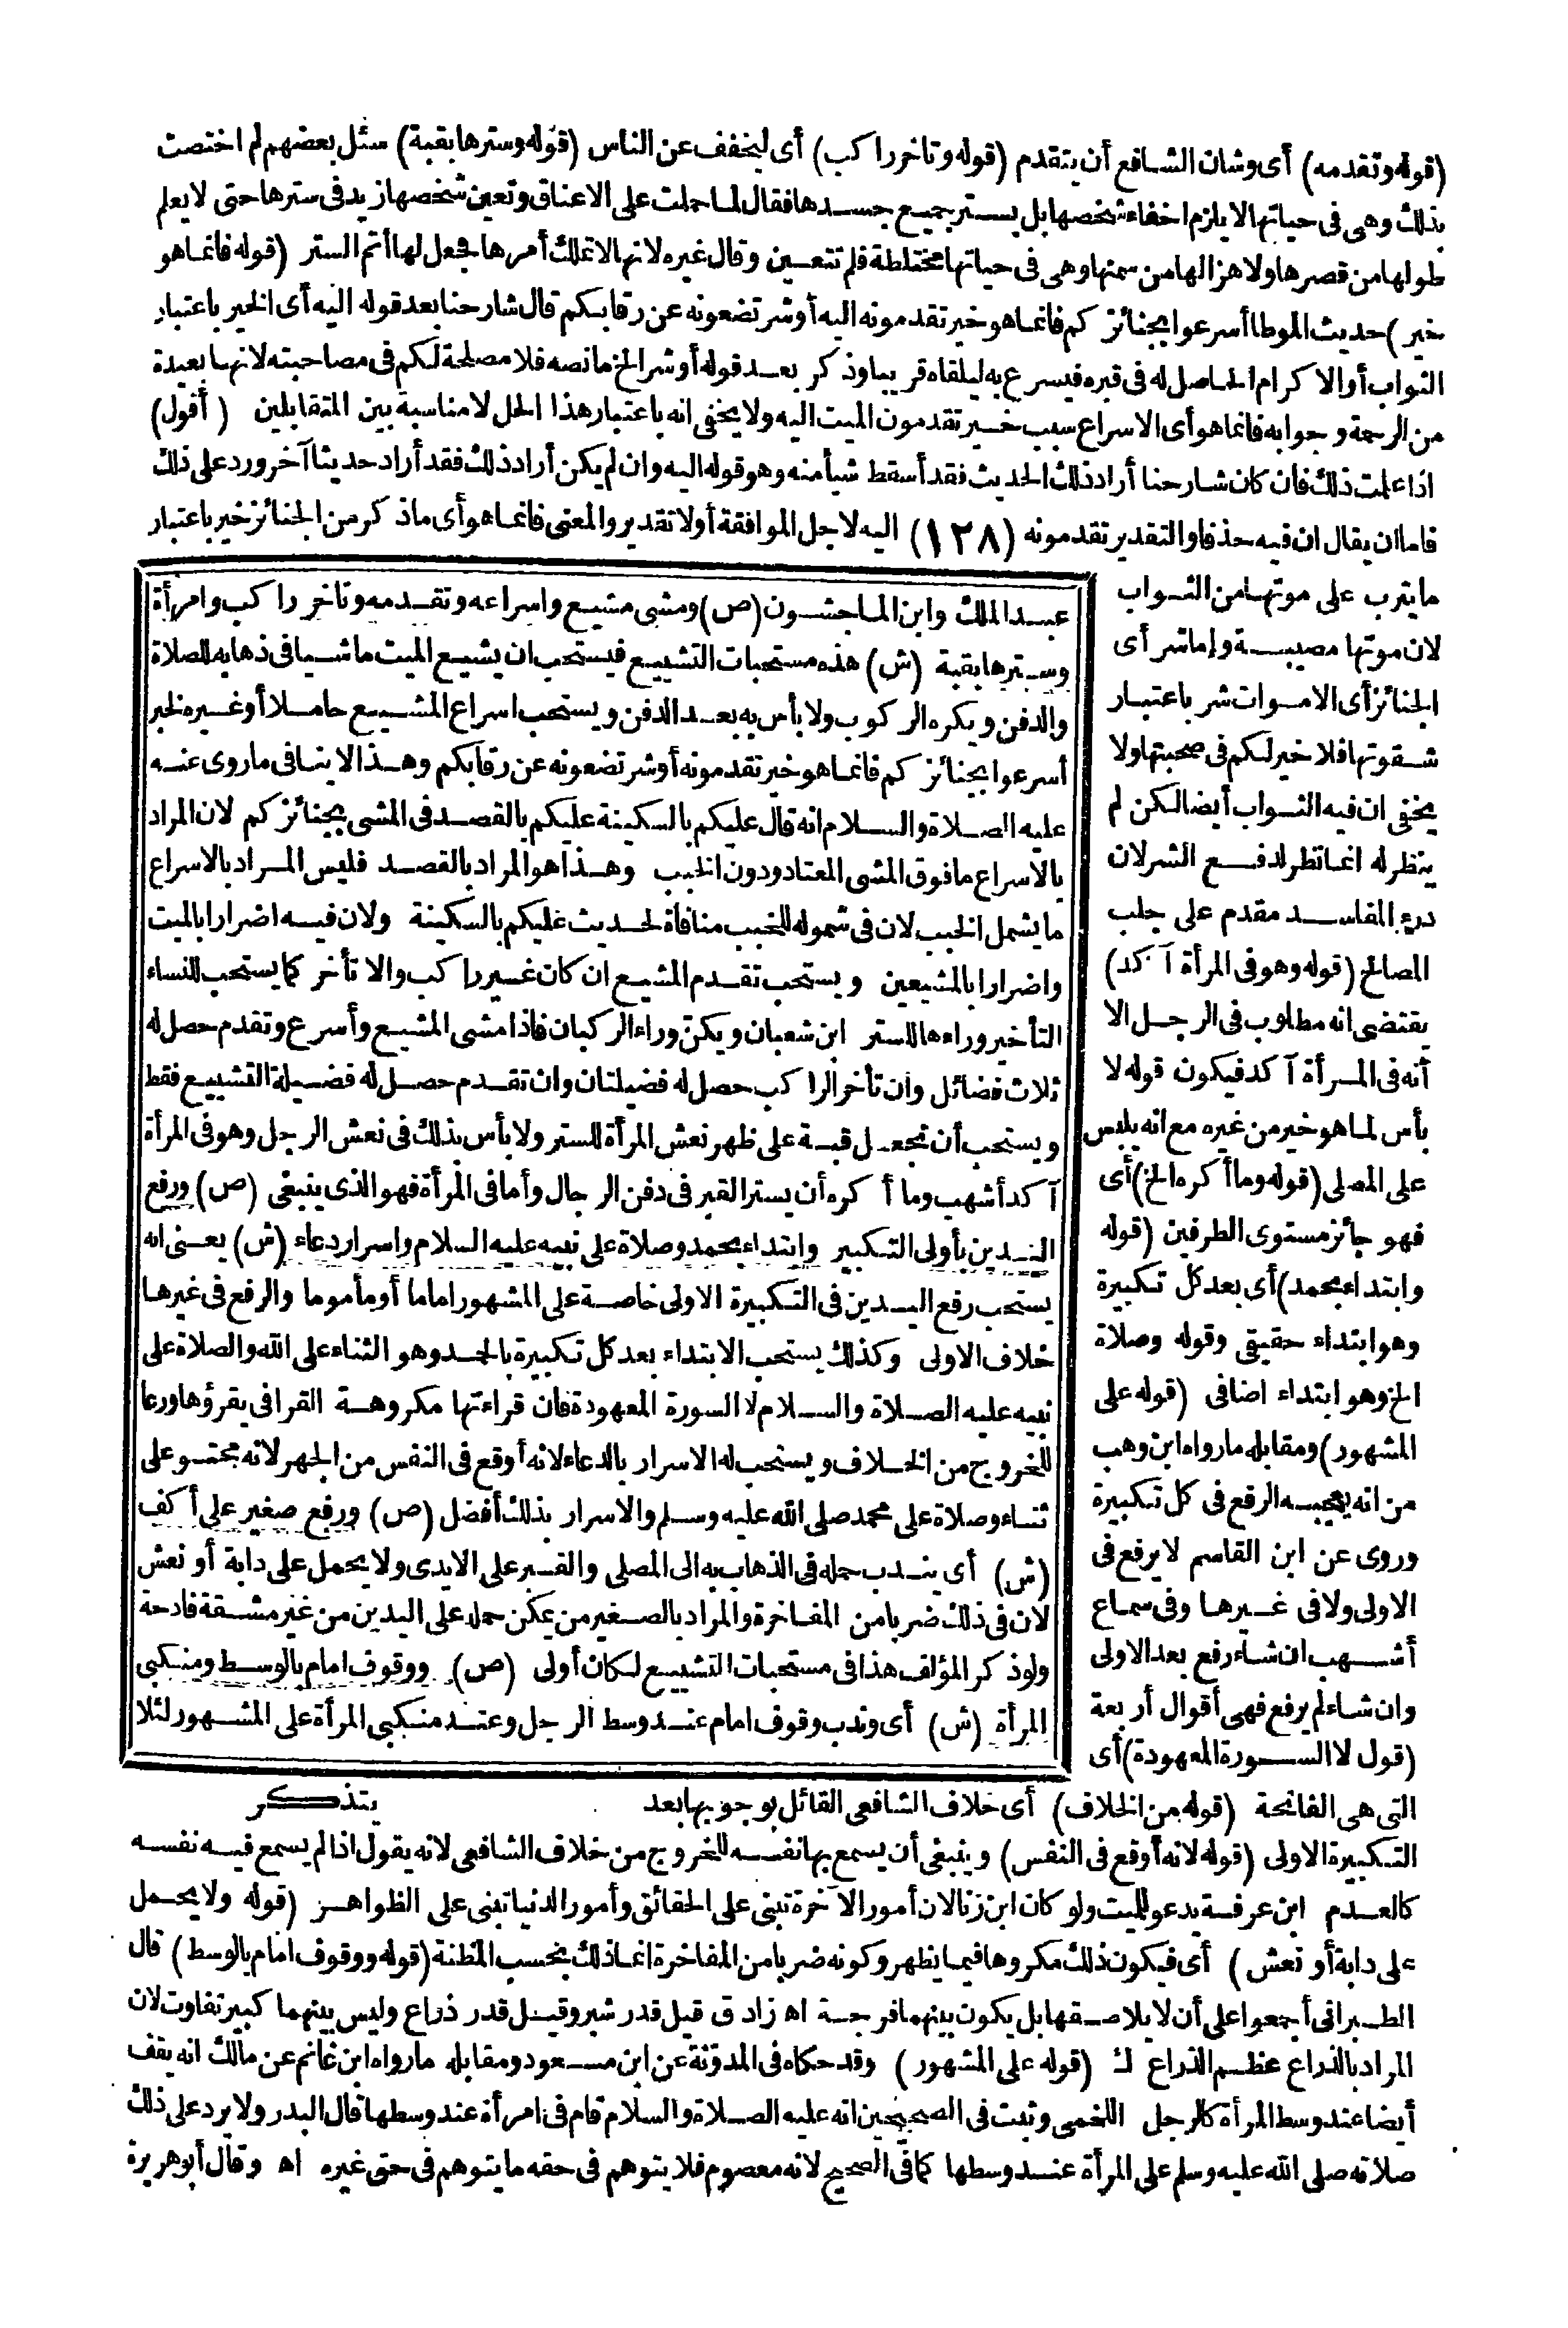 (قوله وتقدمه) أى وشان الشافع أن يتقدم (قوله وتاخر راكب) أى ليخفف عن الناس (قوله وسترها بقبة) سئل بعضهم لم اختصت
بذلك وهى فى حياتها لا يلزم اخفاء شخصها بل يستر جميع جسدها فقال لما حملت على الاعناق وتعين شخصها زيد فى سترها حتى لا يعلم
طولها من قصرها ولا هزالها من سمنها وهى فى حياتها مختلطة فلم تتعين وقال غيره لانها لا تملك أمرها فجعل لها أتم الستر (قوله فانما هو
خير) حديث الموطا أسرعوا بجنائزكم فانما هو خير تقدمونه اليه أو شر تضعونه عن رقابكم قال شارحنا بعد قوله اليه أى الخير باعتبار
الثواب أو الاكرام الحاصل له فى قبره فيسرع به ليلقاه قريبا وذكر بعد قوله أو شر الخ ما نصه فلا مصلحة لكم فى مصاحبته لانها بعيدة
من الرحمة وجوابه فانما هو أى الاسراع سبب خير تقدمون الميت اليه ولا يخفى انه باعتبار هذا الحل لا مناسبة بين المتقابلين (أقول)
اذا علمت ذلك فان كان شارحنا أراد ذلك الحديث فقد أسقط شيأ منه وهو قوله اليه وان لم يكن أراد ذلك فقد أراد حديثا آخر ورد على ذلك
فاما ان يقال ان فيه حذفا والتقدير تقدمونه (١٢٨) اليه لاجل الموافقة أو لا تقدير والمعنى فانما هو أى ما ذكر من الجنائز خير باعتبار
ما يترب على موتها من الثواب
لان موتها مصيبة وإما شر أى
الجنائز أى الاموات شر باعتبار
شقوتها فلا خير لكم فى صحبتها ولا
يخفى ان فيه الثواب أيضا لكن لم
ينظر له انما نظر لدفع الشر لان
درء المفاسد مقدم على جلب
المصالح (قوله وهو فى المرأة آكد)
يقتضى انه مطلوب فى الرجل الا
أنه فى المرأة آكد فيكون قوله لا
بأس لما هو خير من غيره مع انه يلبس
على المصلى (قوله وما أكره الخ) أى
فهو جائز مستوى الطرفين (قوله
وابتداء بحمد) أى بعد كل تكبيرة
وهو ابتداء حقيقى وقوله وصلاة
الخ وهو ابتداء اضافى (قوله على
المشهور) ومقابله ما رواه ابن وهب
من انه يعجبه الرفع فى كل تكبيرة
وروى عن ابن القاسم لا يرفع فى
الاولى ولا فى غيرها وفى سماع
أشهب ان شاء رفع بعد الاولى
وان شاء لم يرفع فهى أقوال أربعة
(قول لا السورة المعهودة) أى
عبد الملك وابن الماجشون (ص) ومشى مشيع واسراعه وتقدمه وتاخر راكب وامرأة
وسترها بقبة (ش) هذه مستحبات التشييع فيستحب ان يشيع الميت ماشيا فى ذهابه للصلاة
والدفن ويكره الركوب ولا بأس به بعد الدفن ويستحب اسراع المشيع حاملا أو غيره لخبر
أسرعوا بجنائزكم فانما هو خير تقدمونه أو شر تضعونه عن رقابكم وهذا لا ينافى ما روى عنه
عليه الصلاة والسلام انه قال عليكم بالسكينة عليكم بالقصد فى المشى بجنائزكم لان المراد
بالاسراع ما فوق المشى المعتاد ودون الخبب وهذا هو المراد بالقصد فليس المراد بالاسراع
ما يشمل الخبب لان فى شموله للخبب منافاة لحديث عليكم بالسكينة ولان فيه اضرارا بالميت
واضرارا بالمشيعين ويستحب تقدم المشيع ان كان غير راكب والا تأخر كما يستحب للنساء
التأخير وراءها للستر ابن شعبان ويكن وراء الركبان فاذا مشى المشيع وأسرع وتقدم حصل له
ثلاث فضائل وان تأخر الراكب حصل له فضيلتان وان تقدم حصل له فضيلة التشييع فقط
ويستحب أن تجعل قبة على ظهر نعش المرأة للستر ولا بأس بذلك فى نعش الرجل وهو فى المرأة
آكد أشهب وما أكره أن يستر القبر فى دفن الرجال وأما فى المرأة فهو الذى ينبغى (ص) ورفع
اليدين بأولى التكبير وابتداء بحمد وصلاة على نبيه عليه السلام واسرار دعاء (ش) يعنى انه
يستحب رفع اليدين فى التكبيرة الاولى خاصة على المشهور اماما أو مأموما والرفع فى غيرها
خلاف الاولى وكذلك يستحب الابتداء بعد كل تكبيرة بالحمد وهو الثناء على الله والصلاة على
نبيه عليه الصلاة والسلام لا السورة المعهودة فان قراءتها مكروهة القرافى يقرؤها ورعا
للخروج من الخلاف ويستحب له الاسرار بالدعاء لانه أوقع فى النفس من الجهر لانه محتو على
ثناء وصلاة على محمد صلى الله عليه وسلم والاسرار بذلك أفضل (ص) ورفع صغير على أكف
(ش) أى يندب حمله فى الذهاب به الى المصلى والقبر على الايدى ولا يحمل على دابة أو نعش
لان فى ذلك ضربا من المفاخرة والمراد بالصغير من يمكن حمله على اليدين من غير مشقة فادحة
ولو ذكر المؤلف هذا فى مستحبات التشييع لكان أولى (ص) ووقوف امام بالوسط ومنكبى
المرأة (ش) أى وندب وقوف امام عند وسط الرجل وعند منكبى المرأة على المشهور لئلا
يتذكر
التى هى الفاتحة (قوله من الخلاف) أى خلاف الشافعى القائل بوجوبها بعد
التكبيرة الاولى (قوله لانه أوقع فى النفس) وينبغى أن يسمع بها نفسه للخروج من خلاف الشافعى لانه يقول اذا لم يسمع فيه نفسه
كالعدم ابن عرفة يدعو للميت ولو كان ابن زنا لان أمور الآخرة تبنى على الحقائق وأمور الدنيا تبنى على الظواهر (قوله ولا يحمل
على دابة أو نعش) أى فيكون ذلك مكروها فيما يظهر وكونه ضربا من المفاخرة انما ذلك بحسب المظنة (قوله ووقوف امام بالوسط) قال
الطبرانى أجمعوا على أن لا يلاصقها بل يكون بينهما فرجة اه زاد ق قيل قدر شبر وقيل قدر ذراع وليس بينهما كبير تفاوت لان
المراد بالذراع عظم الذراع ك (قوله على المشهور) وقد حكاه فى المدونة عن ابن مسعود ومقابله ما رواه ابن غانم عن مالك انه يقف
أيضا عند وسط المرأة كالرجل اللخمى وثبت فى الصحيحين انه عليه الصلاة والسلام قام فى امرأة عند وسطها قال البدر ولا يرد على ذلك
صلاته صلى الله عليه وسلم على المرأة عند وسطها كما فى الصحيح لانه معصوم فلا يتوهم فى حقه ما يتوهم فى حق غيره اه وقال أبو هريرة